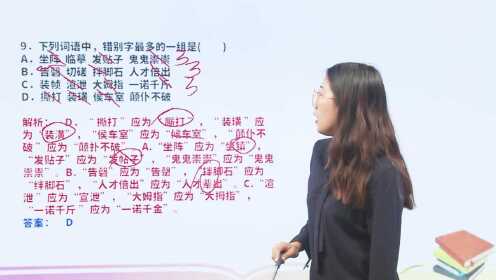 9．下列词语中，错别字最多的一组是(　　)
A．坐阵 临摹 发贴子 鬼鬼祟祟
B．告罄 切磋 拌脚石 人才倍出
C．装帧 渲泄 大姆指 一诺千斤
D．撕打 装璜 侯车室 颠仆不破
解析： D．“撕打”应为“厮打”，“装璜”应
为“装潢”，“侯车室”应为“候车室”，“颠仆不
破”应为“颠扑不破”。A.“坐阵”应为“坐镇”，
“发贴子”应为“发帖子”，“鬼鬼崇崇”应为“鬼鬼
祟祟”。B.“告
”应为“告罄”，“拌脚石”应为
“绊脚石”，“人才倍出”应为“人才辈出”。C.“渲
泄”应为“宣泄”，“大姆指”应为“大拇指”，
“一诺千斤”应为“一诺千金”。
答案： D